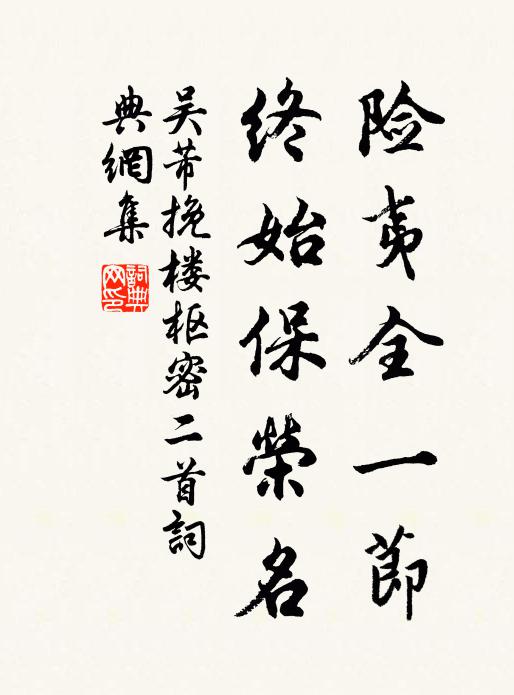 险夷全一節
终始保榮名
吴芾挽楼枢密二首詞
典網集
詞典网印